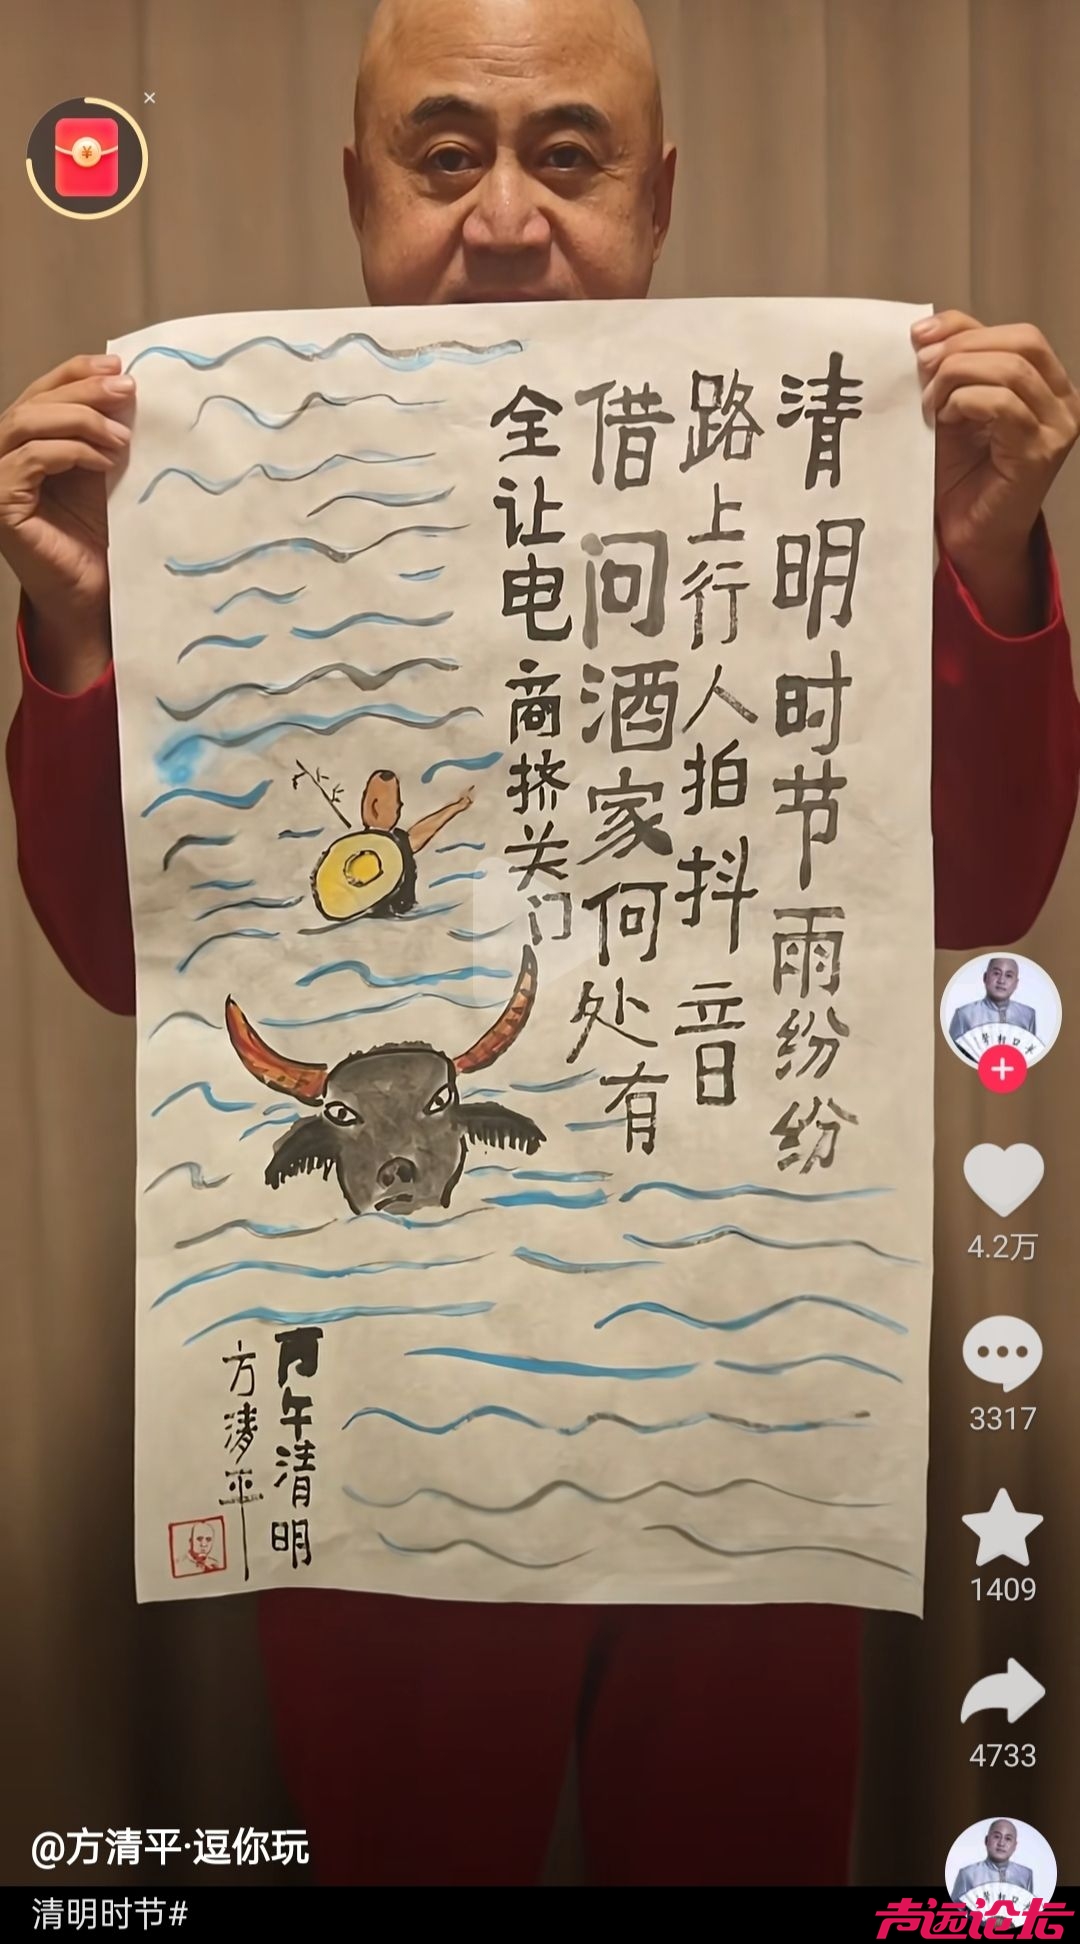 清明时节雨纷纷
路上行人拍抖音
借问酒家何处有
全让电商挤关门
丙午清明
方清平
4.2万
3317
1409
4733
@方清平·逗你玩
清明时节#
声远论坛